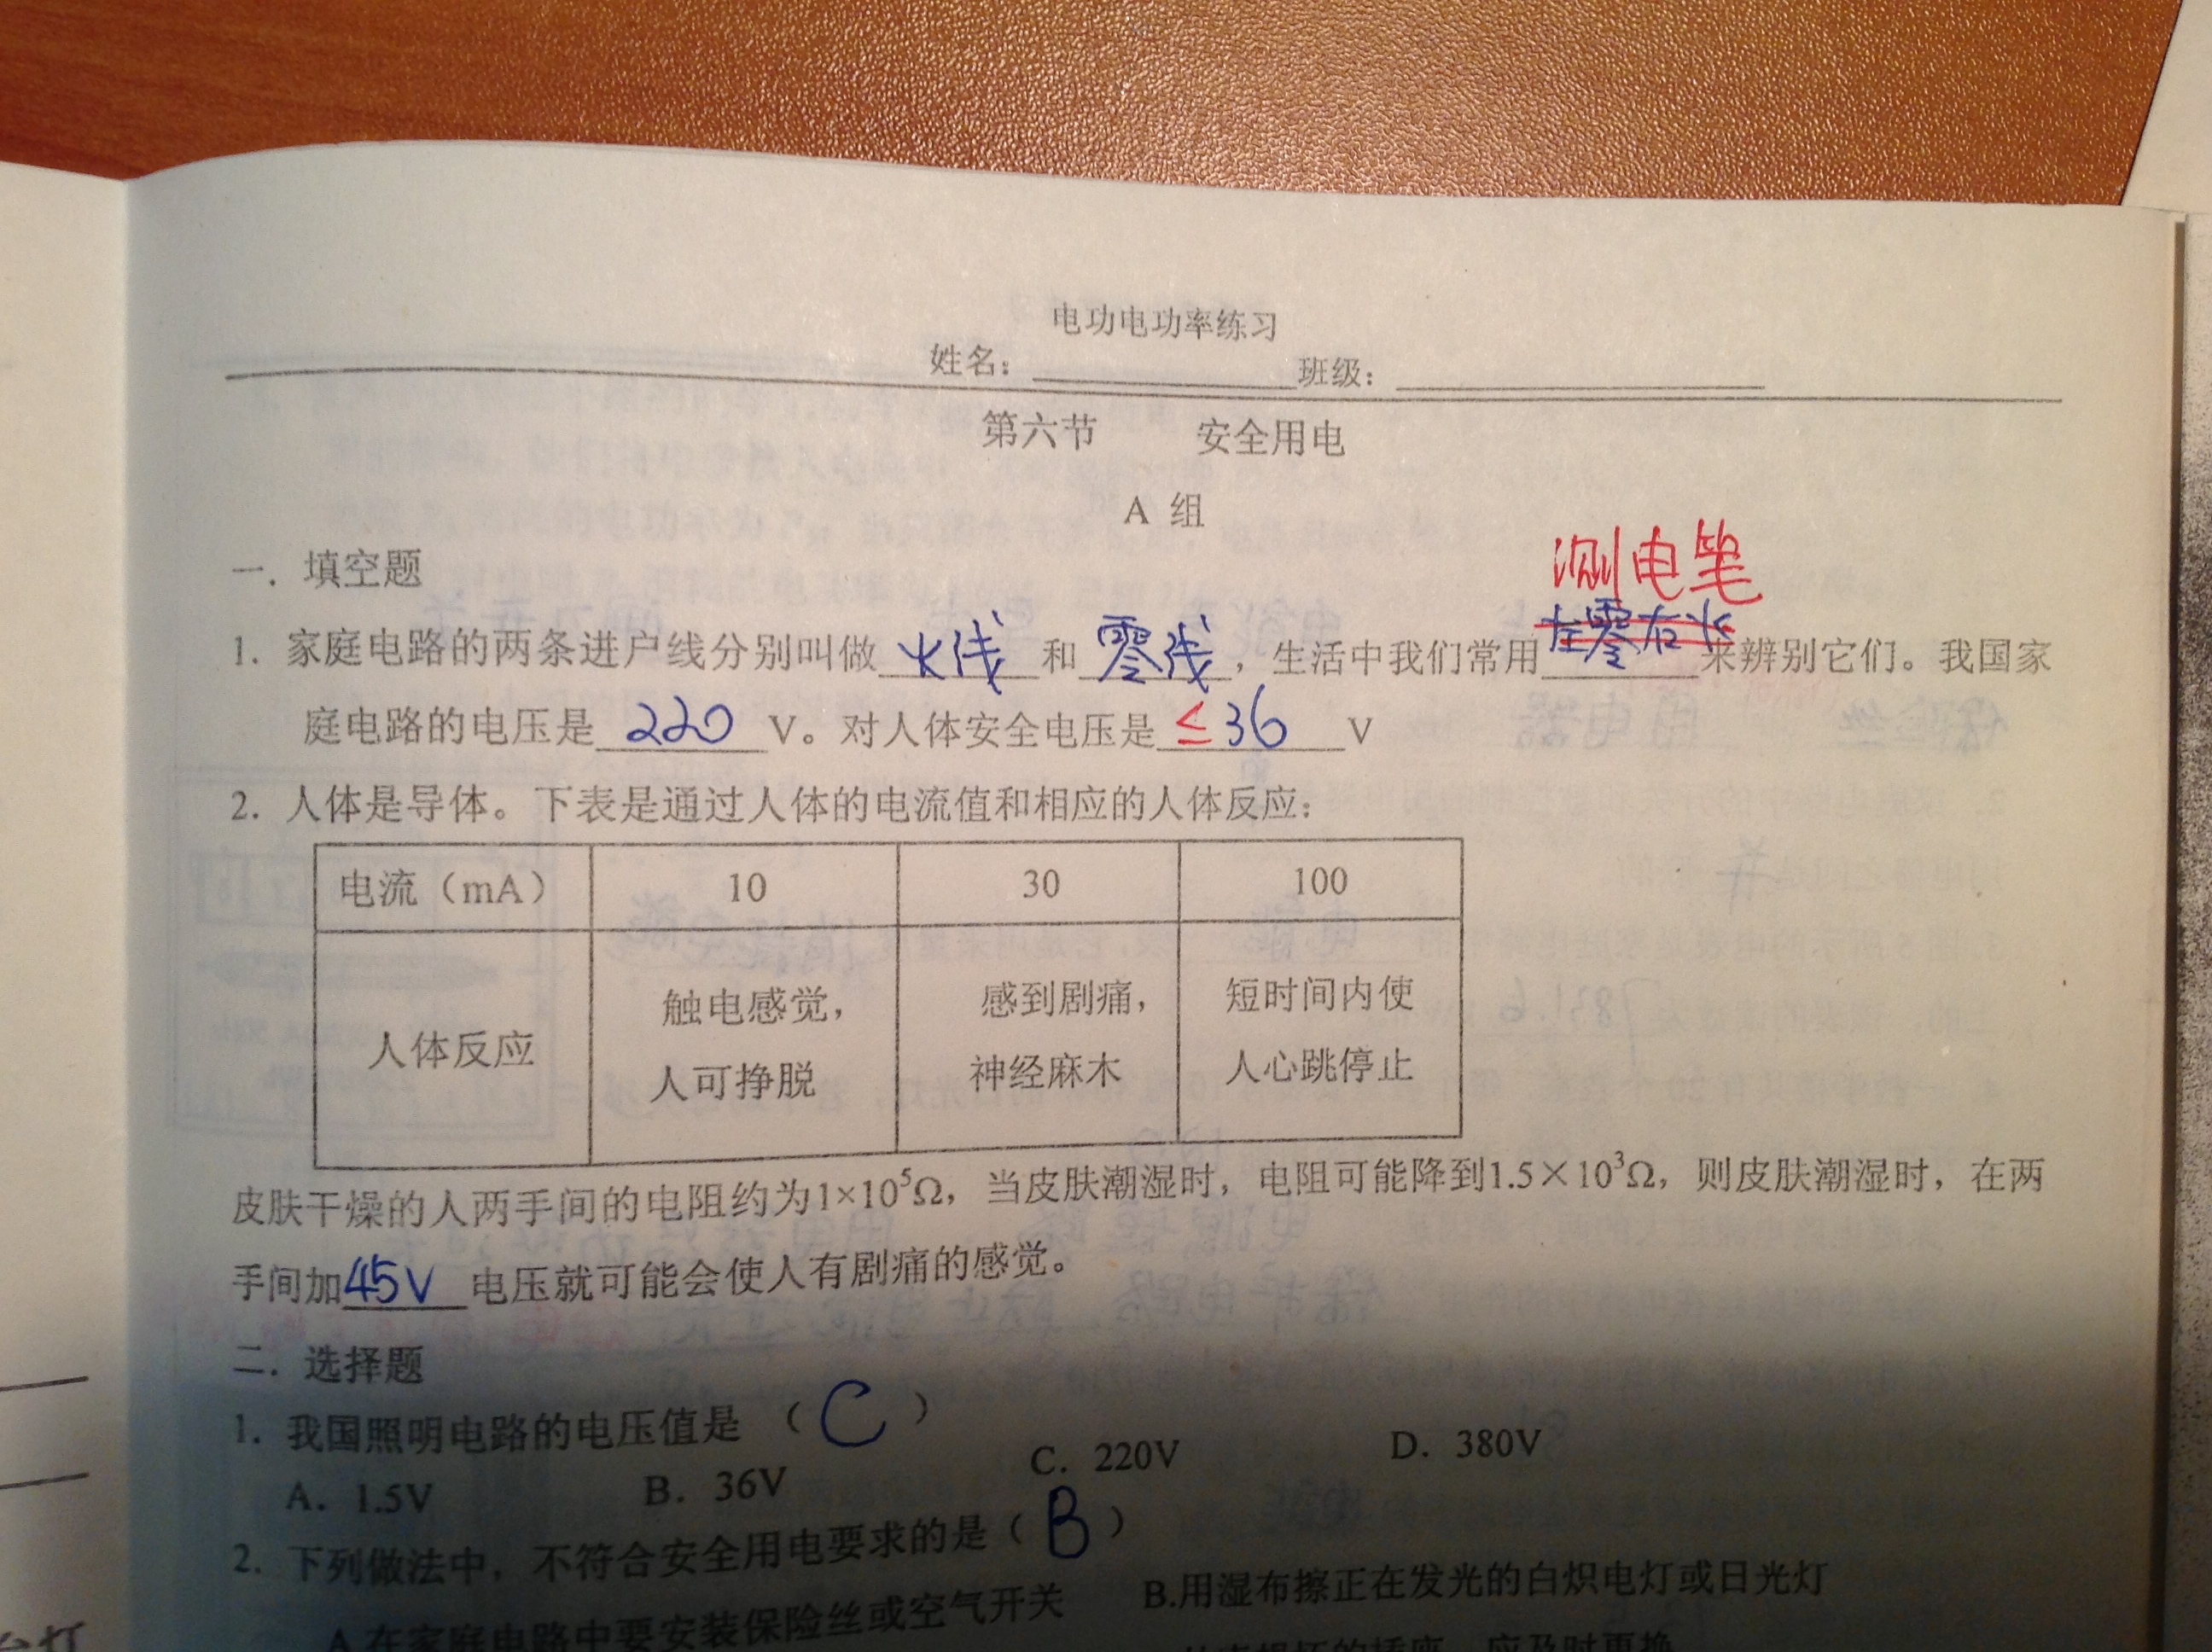 电功电功率练习
姓名：班级：
第六节 安全用电
A 组
一．填空题
测电笔
左零右火
1．家庭电路的两条进户线分别叫做火线和零线，生活中我们常用来辨别它们。我国家
庭电路的电压是220V。对人体安全电压是≤36V
2．人体是导体。下表是通过人体的电流值和相应的人体反应：
电流（mA） 10 30 100
触电感觉， 感到剧痛， 短时间内使
人体反应
人可挣脱 神经麻木 人心跳停止
皮肤干燥的人两手间的电阻约为1×10⁵Ω，当皮肤潮湿时，电阻可能降到1.5×10³Ω，则皮肤潮湿时，在两
手间加45V电压就可能会使人有剧痛的感觉。
二．选择题
1．我国照明电路的电压值是（C）
A．1.5V B．36V C．220V D．380V
2．下列做法中，不符合安全用电要求的是（B）
A.在家庭电路中要安装保险丝或空气开关 B.用湿布擦正在发光的白炽电灯或日光灯
损坏的插座，应及时更换
台灯